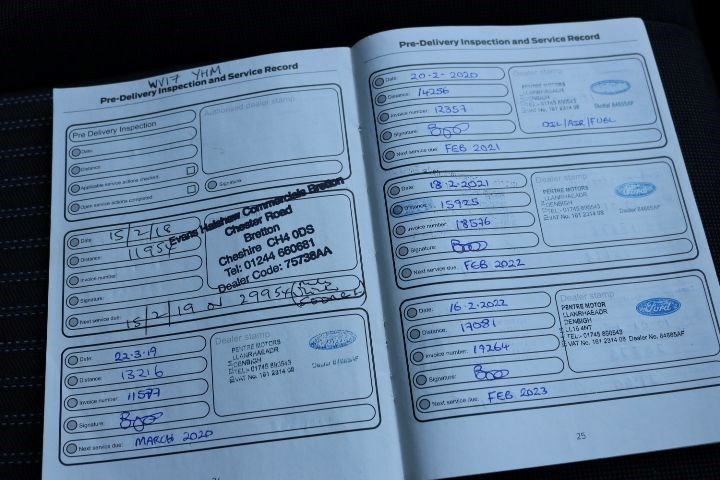 WV17 YHM
Pre-Delivery Inspection and Service Record
Pre Delivery Inspection
Authorised dealer stamp
Date:
Distance:
Applicable service actions checked:
Open service actions completed:
Signature:
Date: 15/2/18
Distance: 11954
Invoice number:
Signature:
Next service due: 15/2/19 or 29954
Evans Halshaw Commercials Bretton
Chester Road
Bretton
Cheshire CH4 0DS
Tel: 01244 660681
Dealer Code: 75738AA
Date: 22-3-19
Distance: 13216
Invoice number: 11587
Signature:
Next service due: MARCH 2020
Dealer stamp
PENTRE MOTORS
LLANRHAEADR
DENBIGH
TEL - 01745 890543
VAT No. 161 2314 08
Ford
Dealer No. 84685AF
Pre-Delivery Inspection and Service Record
Date: 20-2-2020
Distance: 14256
Invoice number: 12357
Signature:
Next service due: FEB 2021
Dealer stamp
PENTRE MOTORS
LLANRHAEADR
DENBIGH
TEL - 01745 890543
VAT No. 161 2314 08
Ford
Dealer 84685AF
OIL/AIR/FUEL
Date: 18-2-2021
Distance: 15925
Invoice number: 18576
Signature:
Next service due: FEB 2022
Dealer stamp
PENTRE MOTORS
LLANRHAEADR
DENBIGH
TEL - 01745 890543
VAT No. 161 2314 08
Ford
Dealer 84685AF
Date: 16-2-2022
Distance: 17081
Invoice number: 19264
Signature:
Next service due: FEB 2023
Dealer stamp
PENTRE MOTORS
LLANRHAEADR
DENBIGH
LL16 4NT
TEL - 01745 890543
VAT No. 161 2314 08 Dealer No. 84685AF
Ford
25